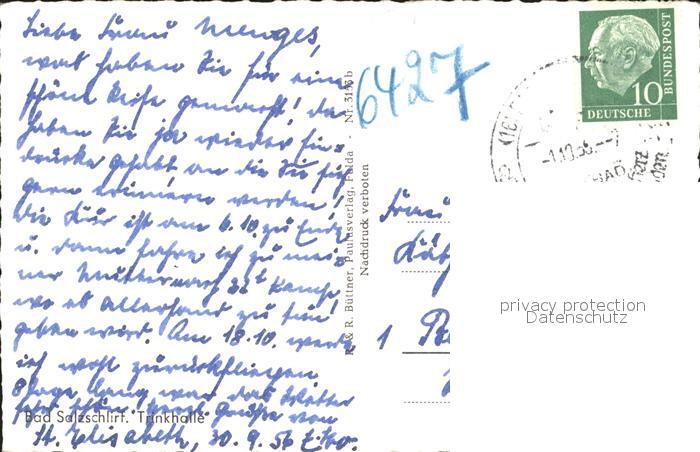 Liebe Frau Menges,
was haben Sie für eine
schöne Reise gemacht! da
haben Sie ja wieder Ein=
drücke gehabt an die Sie sich
gern erinnern werden!
die Kur ist am 6.10. zu Ende
u. dann fahre ich zu mei=
ner Mutter nach
wo es allerhand zu tun
geben wird. Am 18.10. werde
ich wohl zurückfliegen.
8 Tage lang war das Wetter
Grüße von
St. Elisabeth, 30.9.56
Bad Salzschlirf. Trinkhalle
6427
K. & R. Büttner, Paulusverlag, Fulda Nr. 3153 b
Nachdruck verboten
Frau
1
10
DEUTSCHE
BUNDESPOST
-1.10.56.
BAD
privacy protection
Datenschutz